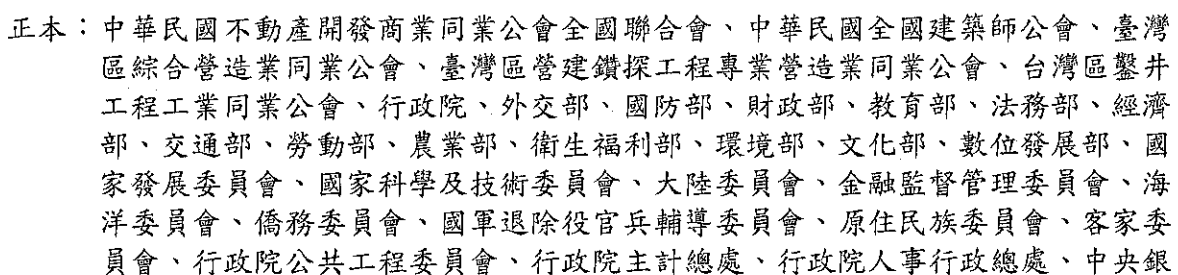 正本：中華民國不動產開發商業同業公會全國聯合會、中華民國全國建築師公會、臺灣
區綜合營造業同業公會、臺灣區營建鑽探工程專業營造業同業公會、台灣區鑿井
工程工業同業公會、行政院、外交部、國防部、財政部、教育部、法務部、經濟
部、交通部、勞動部、農業部、衛生福利部、環境部、文化部、數位發展部、國
家發展委員會、國家科學及技術委員會、大陸委員會、金融監督管理委員會、海
洋委員會、僑務委員會、國軍退除役官兵輔導委員會、原住民族委員會、客家委
員會、行政院公共工程委員會、行政院主計總處、行政院人事行政總處、中央銀